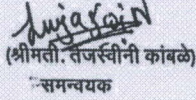 (श्रीमती. तेजस्वीनी कांबळे)
समन्वयक